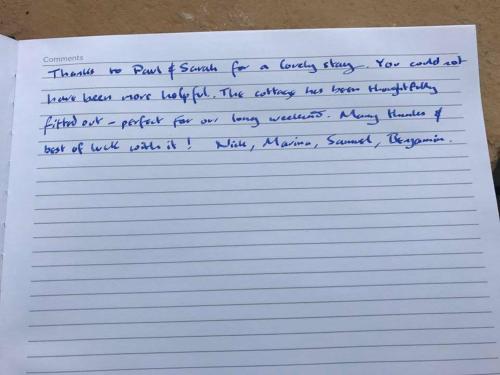 Comments
Thanks to Paul & Sarah for a lovely stay. You could not
have been more helpful. The cottage has been thoughtfully
fitted out - perfect for our long weekend. Many thanks &
best of luck with it! Nick, Marina, Samuel, Benjamin.